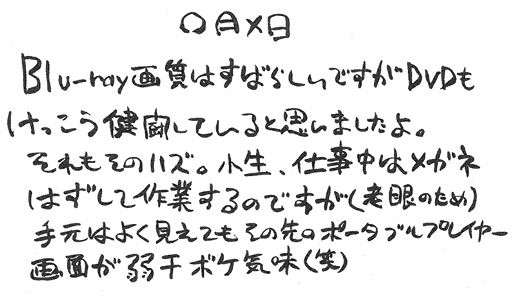 〇月×日
Blu-ray画質はすばらしいですがDVDも
けっこう健闘していると思いましたよ。
それもそのハズ。小生、仕事中はメガネ
はずして作業するのですが(老眼のため)
手元はよく見えてもその先のポータブルプレイヤー
画面が弱干ボケ気味(笑)